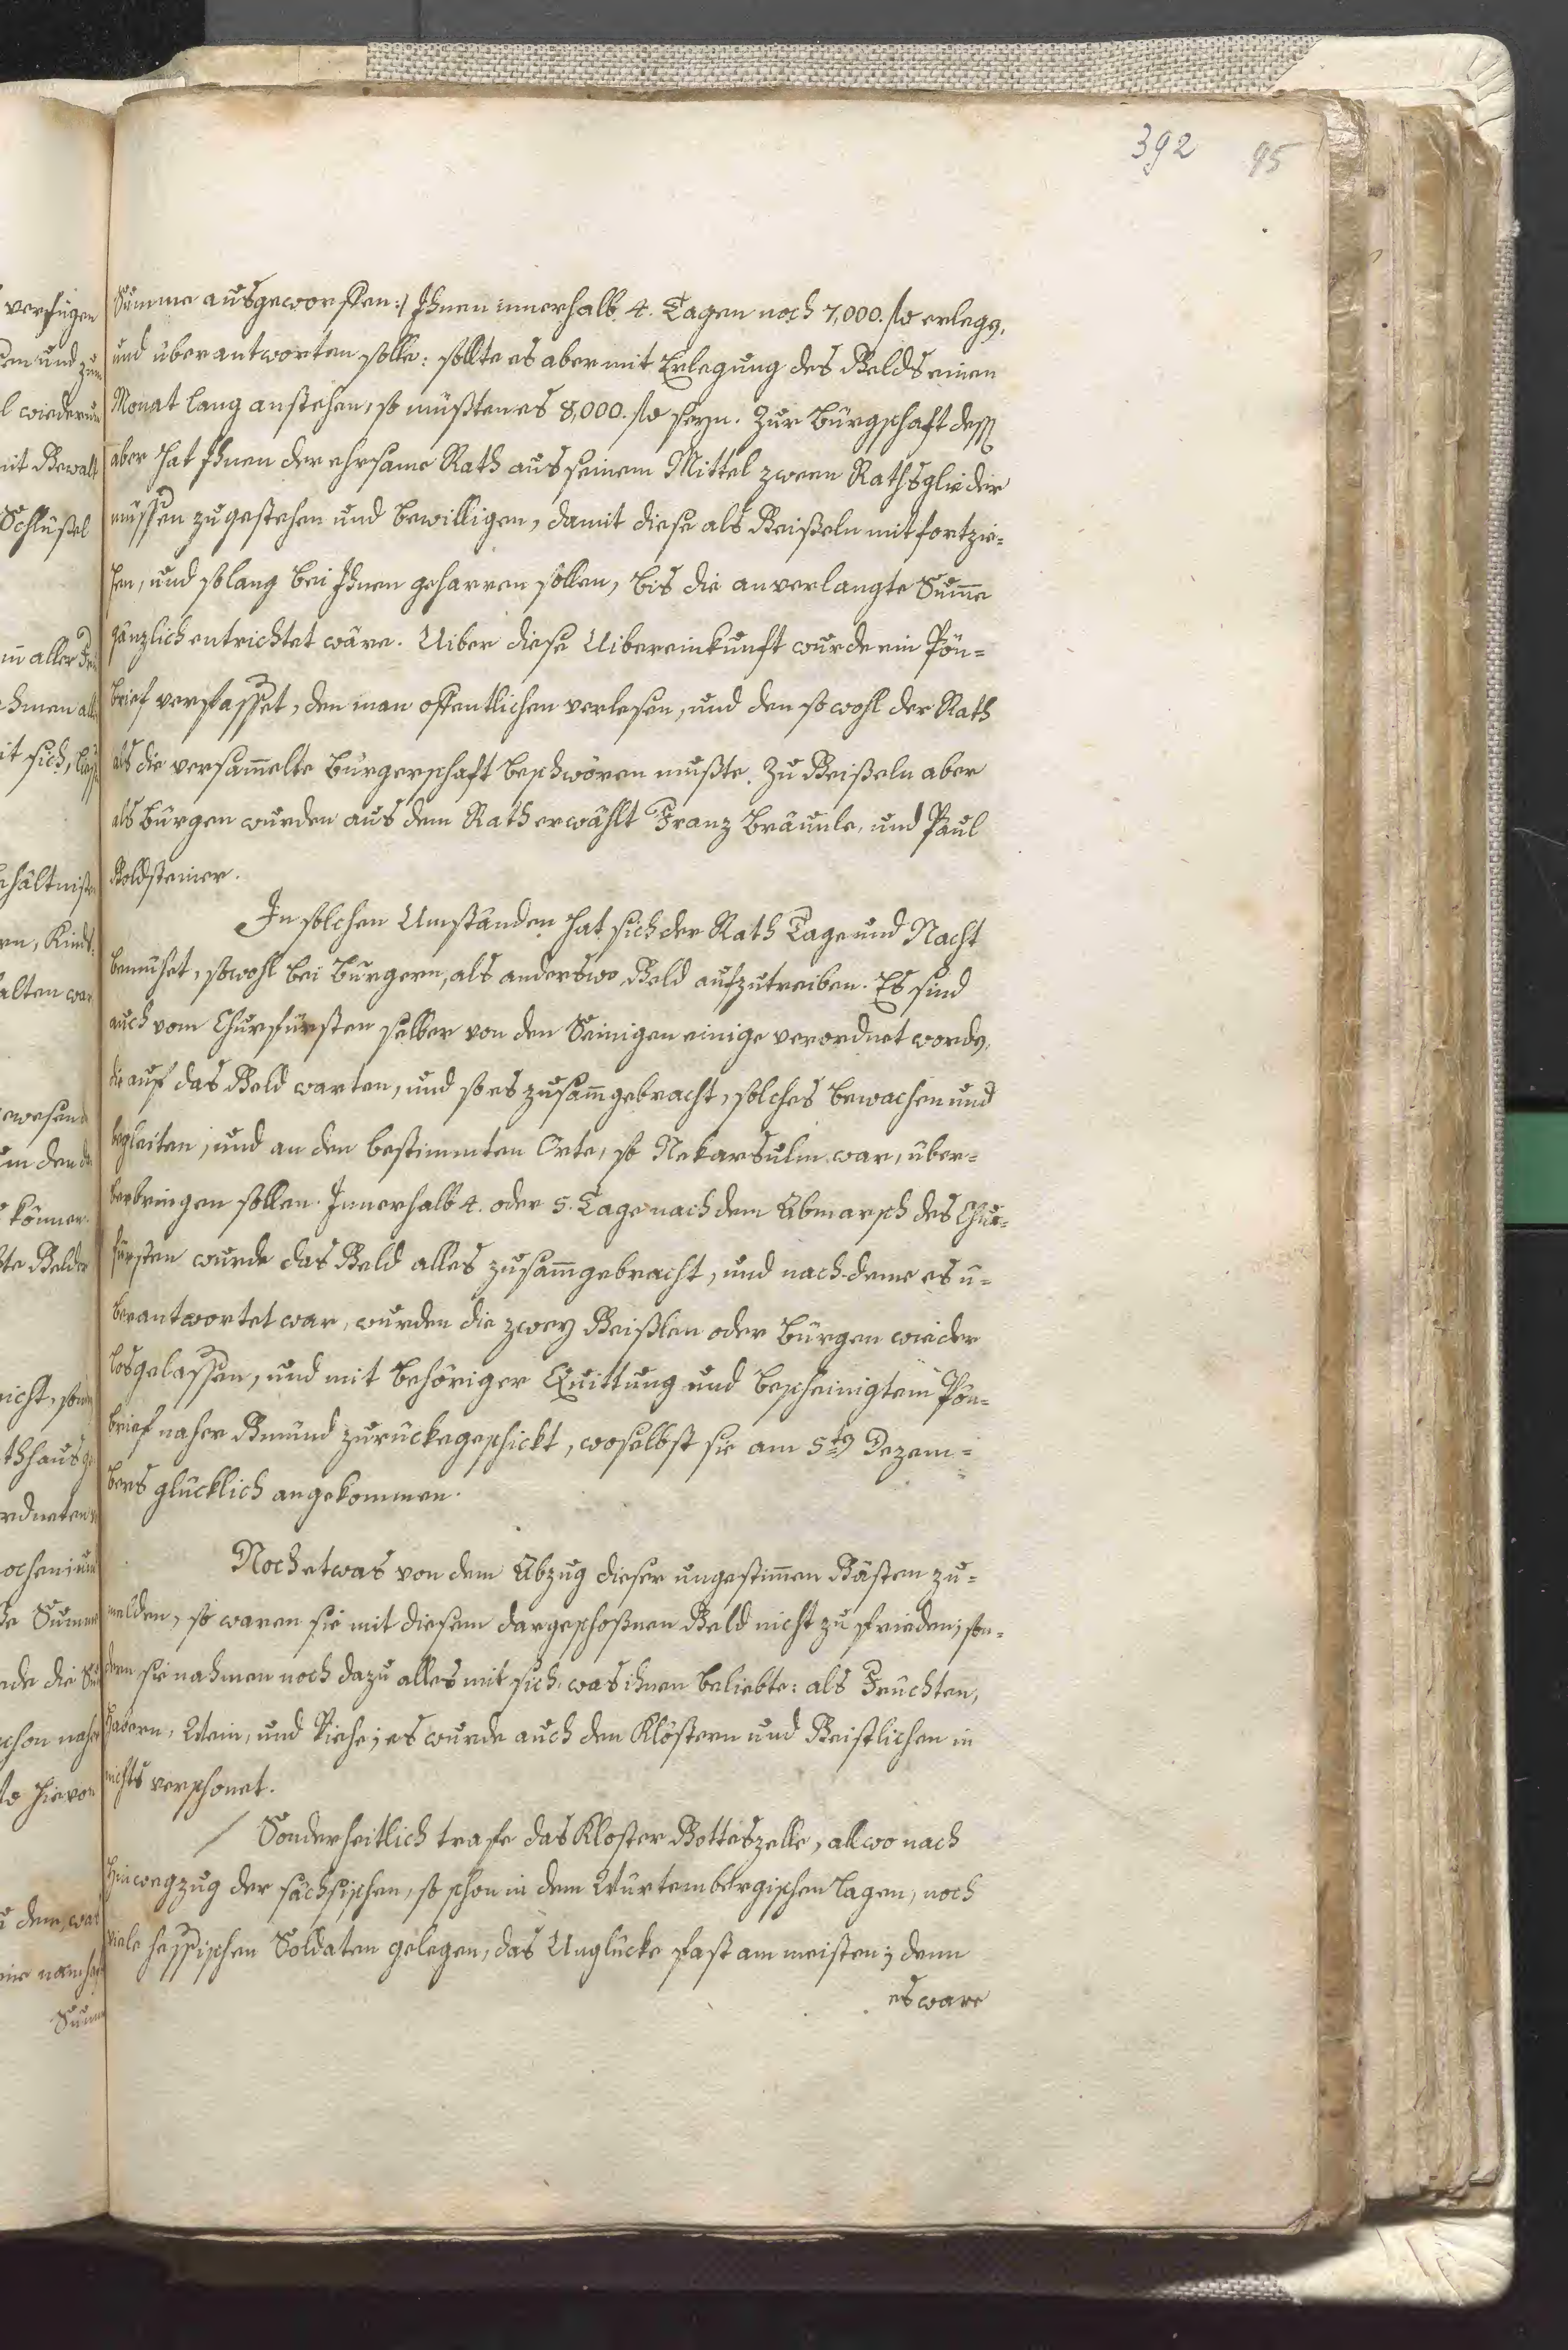 392 95
Summe ausgeworffen:/ Ihnen innerhalb 4. Tagen noch 7,000. fl erlegen,
und überantworten solle: sollte es aber mit Erlegung des Gelds einen
Monat lang anstehen, so müßten es 8,000. fl seyn. Zur Bürgschaft dess
aber hat Ihnen der ehrsame Rath aus seinem Mittel zween Rathsglieder
müssen zugestehen und bewilligen, damit diese als Geißeln mit fortzie=
hen, und solang bei Ihnen geharren sollen, bis die anverlangte Sum̅e
gänzlich entrichtet wäre. Uiber diese Uibereinkunft wurde ein Pön=
brief verfasset, den man offentlichen verlesen, und den so wohl der Rath
als die versam̅elte Burgerschaft beschwören mußte. Zu Geißeln aber
als Bürgen wurden aus dem Rath erwählt Franz Bräunle, und Paul
Goldsteiner.
In solchen Umständen hat sich der Rath Tage und Nacht
bemühet, sowohl bei Burgern, als anderswo Geld aufzutreiben. Es sind
auch vom Churfürsten selber von den Seinigen einige verordnet worden,
die auf das Geld warten, und so es zusam̅gebracht, solches bewachen und
begleiten, und an den bestimmten Orte, so Nekarsulm war, über=
berbringen sollen. Innerhalb 4. oder 5. Tage nach dem Abmarsch des Chur=
fürsten wurde das Geld alles zusam̅gebracht, und nach deme es ü=
berantwortet war, wurden die zwey Geißlen oder Bürgen wieder
losgelassen, und mit behöriger Quittung und bescheinigtem Pön=
brief naher Gmünd zurückegeschickt, woselbst sie am 5ten Dezem=
bers glücklich angekommen.
Noch etwas von dem Abzug dieser ungestim̅en Gästen zu=
melden, so waren sie mit diesem dargeschoßnen Geld nicht zu frieden; son=
dern sie nahmen noch dazu alles mit sich, was ihnen beliebte: als Früchten,
Habern, Wein, und Viehe; es wurde auch den Klöstern und Geistlichen in
nichts verschonet.
/ Sonderheitlich trafe das Kloster Gotteszelle, allwo nach
Hinwegzug der sächsischen, so schon in dem Würtembergischen lagen, noch
viele hessischen Soldaten gelegen, das Unglücke fast am meisten; denn
es ware